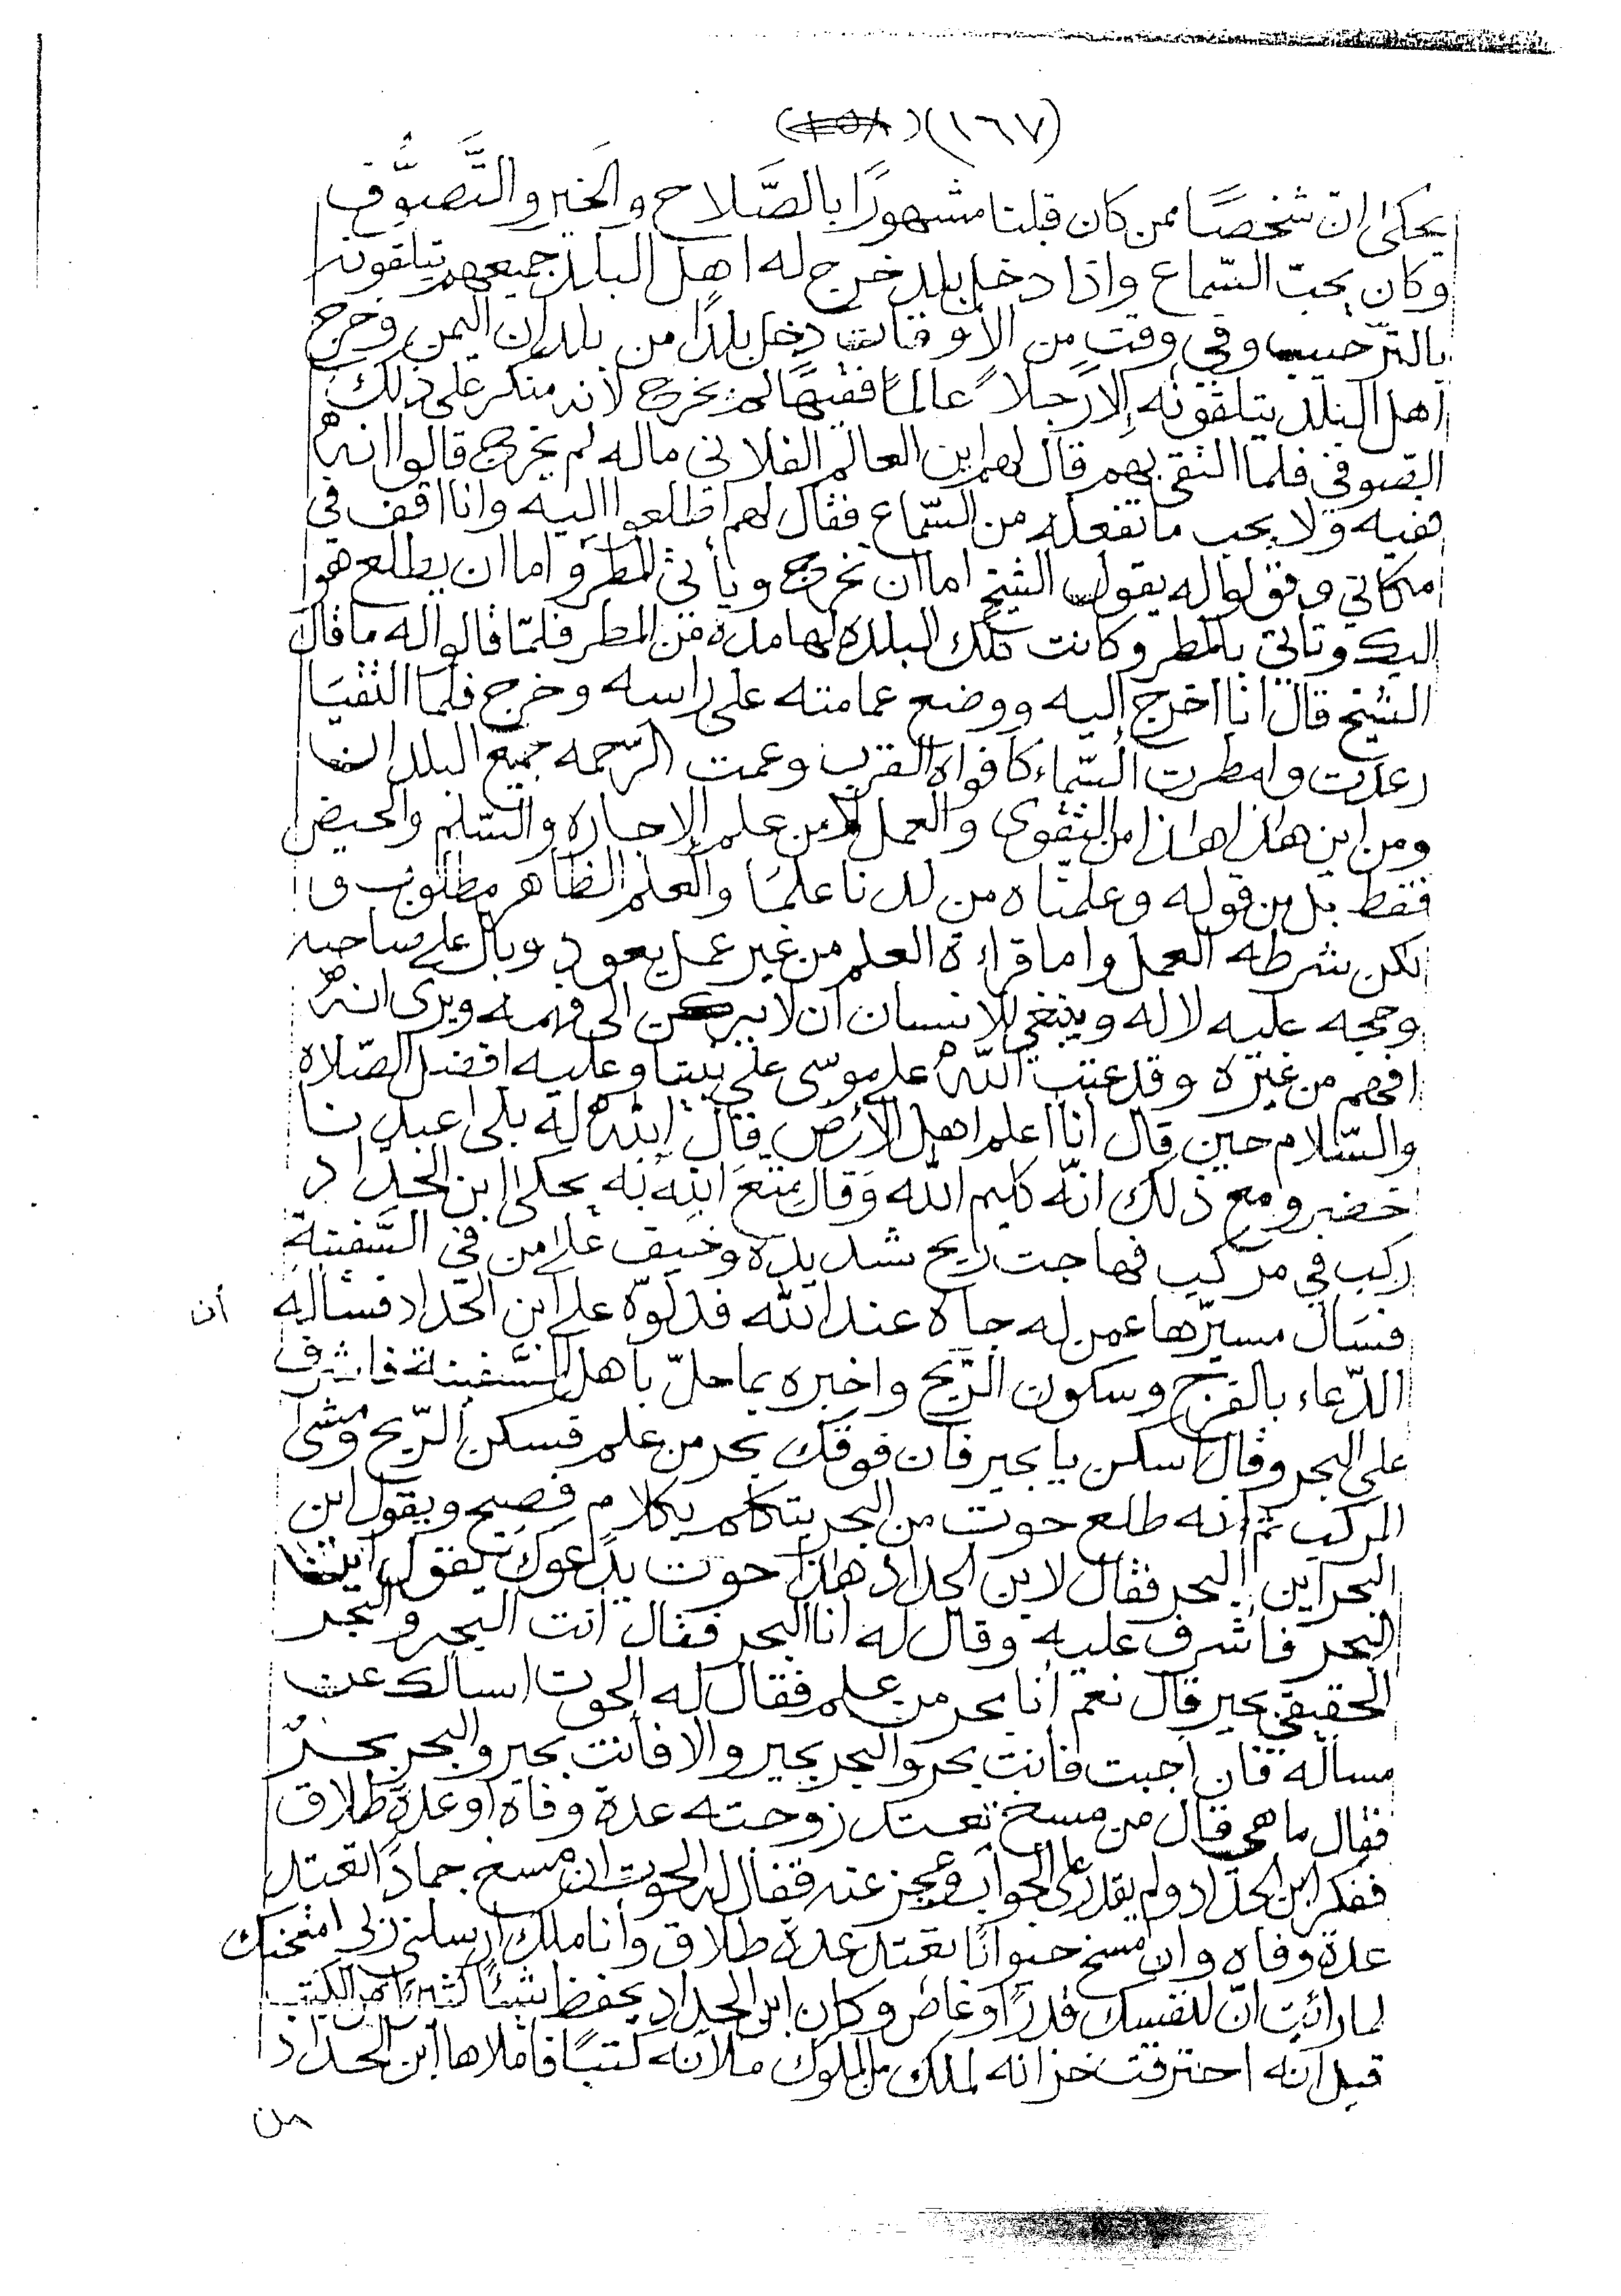 (١٦٧)
يحكى ان شخصًا ممن كان قبلنا مشهورًا بالصَّلاح والخير والتَّصوُّف
وكان يحبّ السّماع واذا دخل بلد خرج له اهل البلد جميعهم يتلقونه
بالترحيب وفي وقت من الأوقات دخل بلدًا من بلدان اليمن وخرج
اهل البلد يتلقونه إلا رجلاً عالمًا فقيهًا لم يخرج لانه منكر على ذلك
الصوفي فلما التقى بهم قال لهم اين العالم الفلاني ماله لم يخرج قالوا انه
فقيه ولا يحب ما تفعله من السّماع فقال لهم اطلعوا اليه وانا اقف في
مكاني وقولوا له يقول الشيخ اما ان تخرج ويأتي المطر واما ان يطلع هو
اليك وتاتي بالمطر وكانت تلك البلده لها مدة من المطر فلمّا قالوا له ما قال
الشيخ قال انا اخرج إليه ووضع عمامته على راسه وخرج فلما التقيَا
رعدت وامطرت السّماء كافواه القرب وعمت الرّحمه جميع البلد
ومن اين هاذا هاذا من التقوى والعمل لا من علم الإجاره والسّلم والحيض
فقط بل من قوله وعلمناه من لدنا علمًا والعلم الظاهر مطلوب و
لكن بشرطه العمل واما قراءة العلم من غير عمل يعود وبال على صاحبه
وحجه عليه لا له وينبغي للانسان ان لا يركن الى فهمه ويرى انه
افهم من غيره وقد عتب اللّه على موسى على نبينا وعليه افضل الصّلاه
والسّلام حين قال أنا اعلم اهل الأرض قال الله له بلى اعبدنا
خضر ومع ذلك انّه كليم الله وقال متعَ الله به يحكى ابن الحدّاد
ركب في مركب فهاجت ريح شديده وخيف على من في السَّفينة
فسَال مسيرّها عمن له جاه عند الله فدلوّه على ابن الحدّاد فسَاله أن
الدّعاء بالفرج وسكون الرّيح واخبره بما حلّ باهل السَّفينة فاشرف
على البحر وقال اسكن يا بحير فان فوقك بحر من علم فسكن الرّيح ومشى
المركب ثم انه طلع حوت من البحر يتكلم بكلام فصيح ويقول اين
البحر اين البحر فقال لابن الحداد هاذا حوت يدعوك يقول اين
البحر فأشرف عليه وقال له انا البحر فقال انت البحر والبحر
الحقيقي بحير قال نعم أنا بحر من علم فقال له الحوت اسالك عن
مساله فان اجبت فأنت بحر والبحر بحير والا فأنت بحير والبحر بحرٌ
فقال ما هي قال من مسخ تعتد زوجته عدة وفاة او عدة طلاق
ففكر ابن الحدّاد ولم يقدر على الجواب وعجز عنه فقال له الحوت ان مسخ جمادًا تعتد
عدة وفاه وان مسخ حيوانًا تعتد عدة طلاق وأنا ملك ارسلني ربي امتحنك
لما رائت انّ لنفسك قدرًا وغاص وكان ابن الحداد يحفظ شيئًا كثيرًا من الكتب
قيل انه احترقت خزانه لملك من الملوك ملآنه كتبًا فاملاها ابن الحداد
من